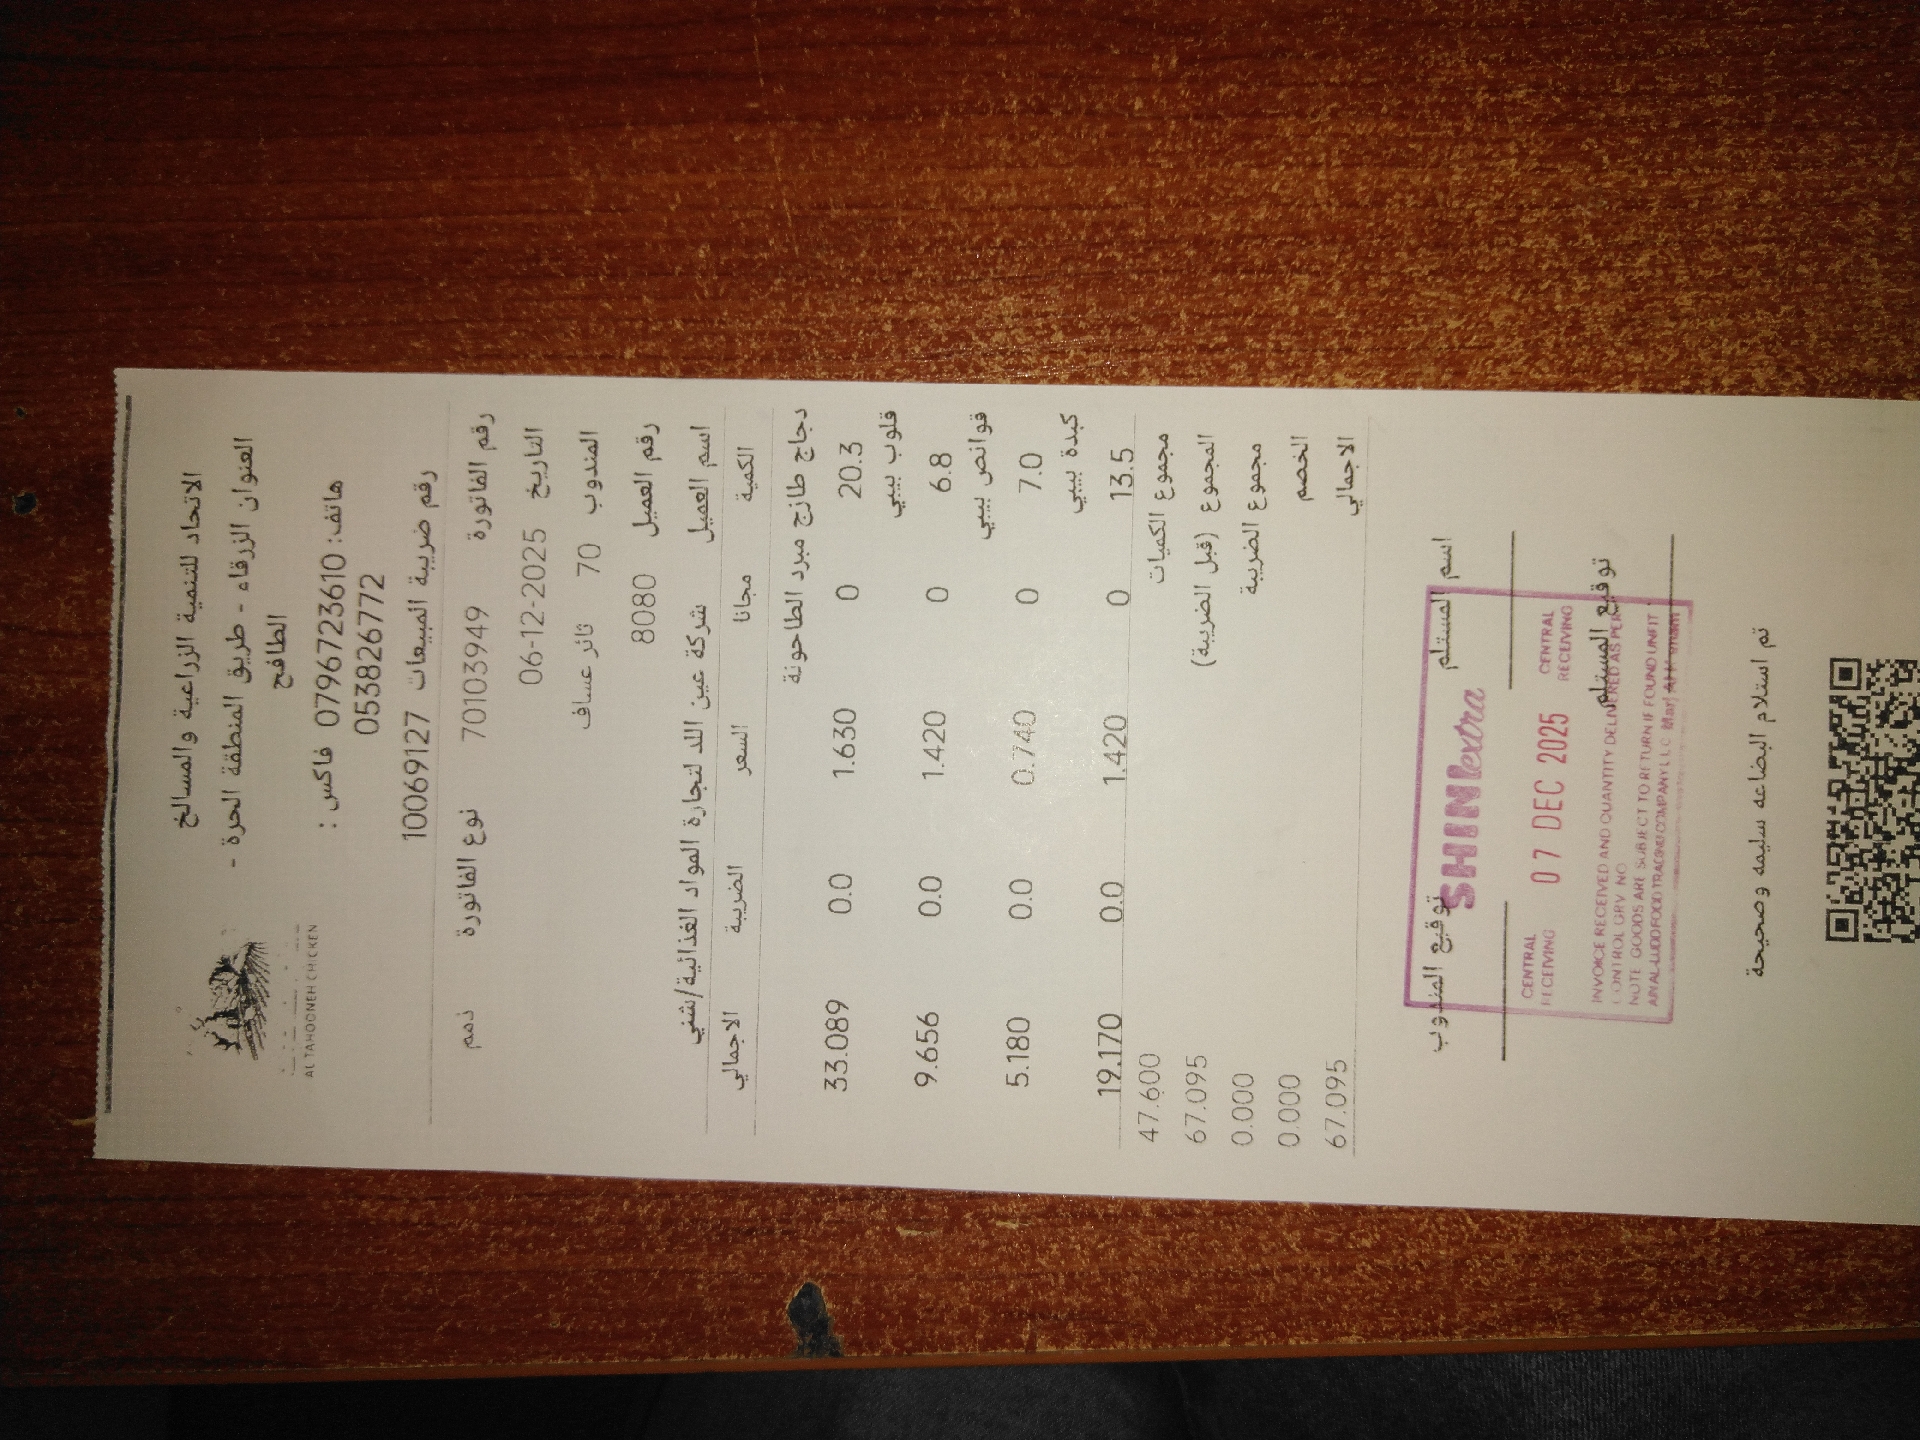 الاتحاد للتنمية الزراعية والمسالخ
العنوان الزرقاء - طريق المنطقة الحرة -
الطافح
هاتف: 0796723610 فاكس :
053826772
رقم ضريبة المبيعات 10069127
AL TAHOONEH CHICKEN
رقم الفاتورة 70103949 نوع الفاتورة ذمم
التاريخ 06-12-2025
المندوب 70 ثائر عساف
رقم العميل 8080
اسم العميل شركة عين اللد لتجارة المواد الغذائية/شني
الكمية مجانا السعر الضريبة الاجمالي
دجاج طازج مبرد الطاحونة
20.3 0 1.630 0.0 33.089
قلوب بيبي
6.8 0 1.420 0.0 9.656
قوانص بيبي
7.0 0 0.740 0.0 5.180
كبدة بيبي
13.5 0 1.420 0.0 19.170
مجموع الكميات 47.600
المجموع (قبل الضريبة) 67.095
مجموع الضريبة 0.000
الخصم 0.000
الاجمالي 67.095
اسم المستلم توقيع المندوب
توقيع المستلم
SHINI extra
CENTRAL RECEIVING 07 DEC 2025 CENTRAL RECEIVING
INVOICE RECEIVED AND QUANTITY DELIVERED AS PER
CONTROL GRV NO
NOTE GOODS ARE SUBJECT TO RETURN IF FOUND UNFIT
تم استلام البضاعه سليمه وصحيحة